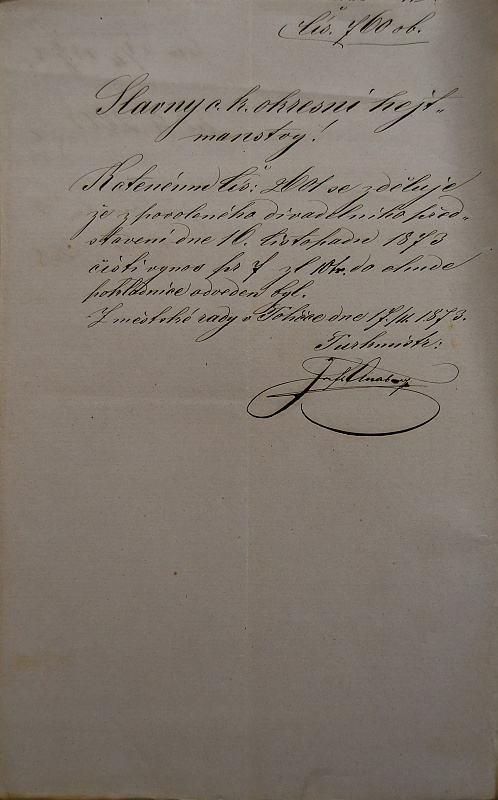 čís. 760 ob.
Slavný c. k. okresní hejt-
manstvy!
K ctenému čís: 2601 se zděluje
že z povoleného divadelního před-
stavení dne 16. listopadu 1873
čistí vynos pr 7 zl 10 kr. do chudé
pokladnice odveden byl.
Z městské rady v dne 17./11. 1873.
Purkmistr: